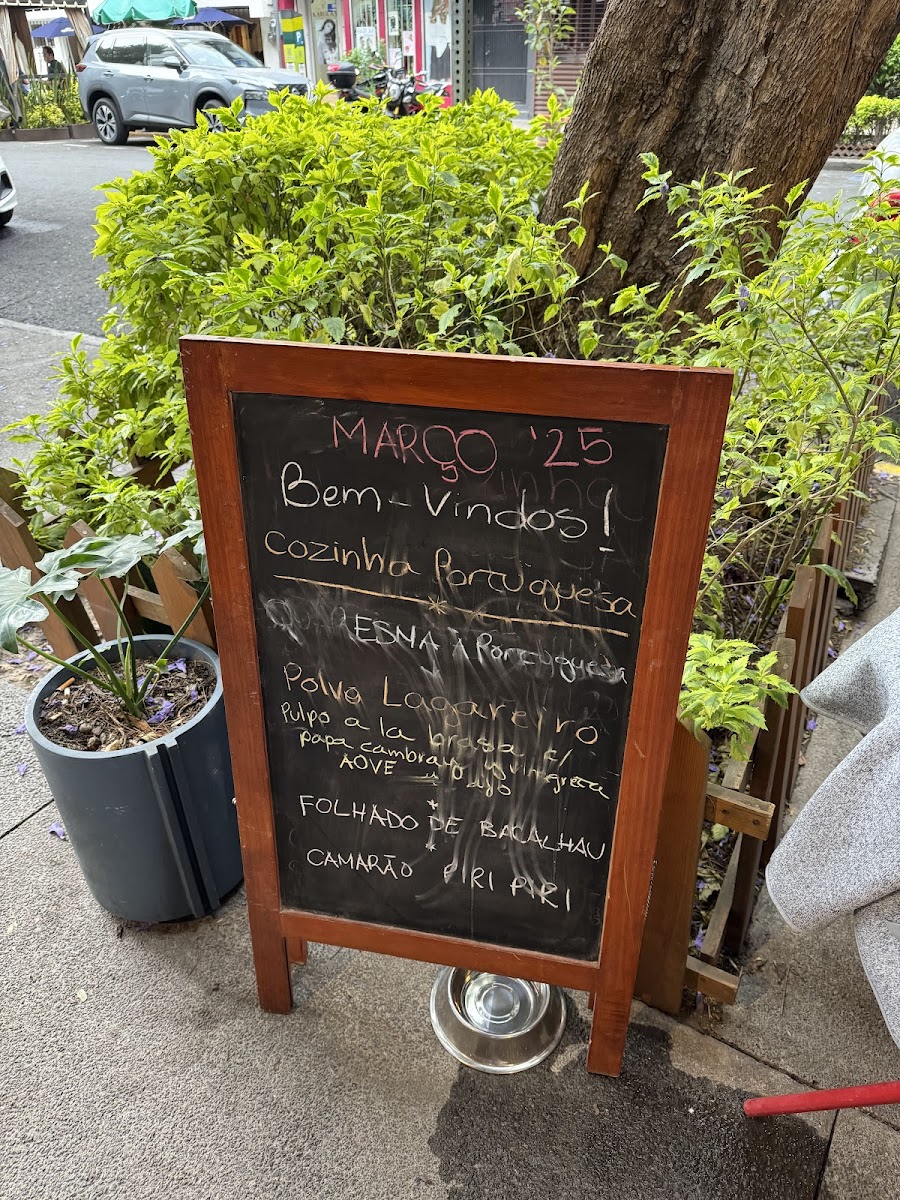 MARÇO '25
Bem-Vindos!
Cozinha Portuguesa
QUARESMA À Portuguesa
Polvo Lagareiro
Pulpo a la brasa c/
papa cambray y vinagreta
AOVE y ajo
FOLHADO DE BACALHAU
CAMARÃO PIRI PIRI